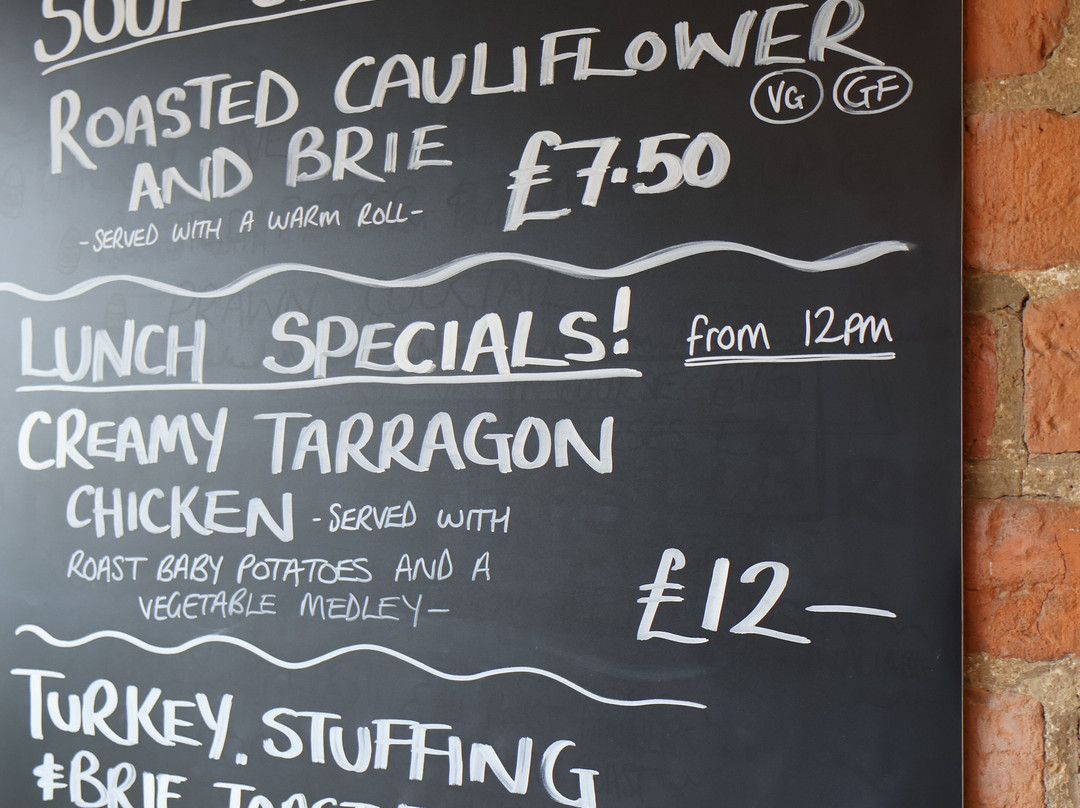 SOUP
ROASTED CAULIFLOWER
VG GF
AND BRIE £7.50
-SERVED WITH A WARM ROLL-
LUNCH SPECIALS! from 12pm
CREAMY TARRAGON
CHICKEN -SERVED WITH
ROAST BABY POTATOES AND A
VEGETABLE MEDLEY-
£12-
TURKEY. STUFFING
& BRIE